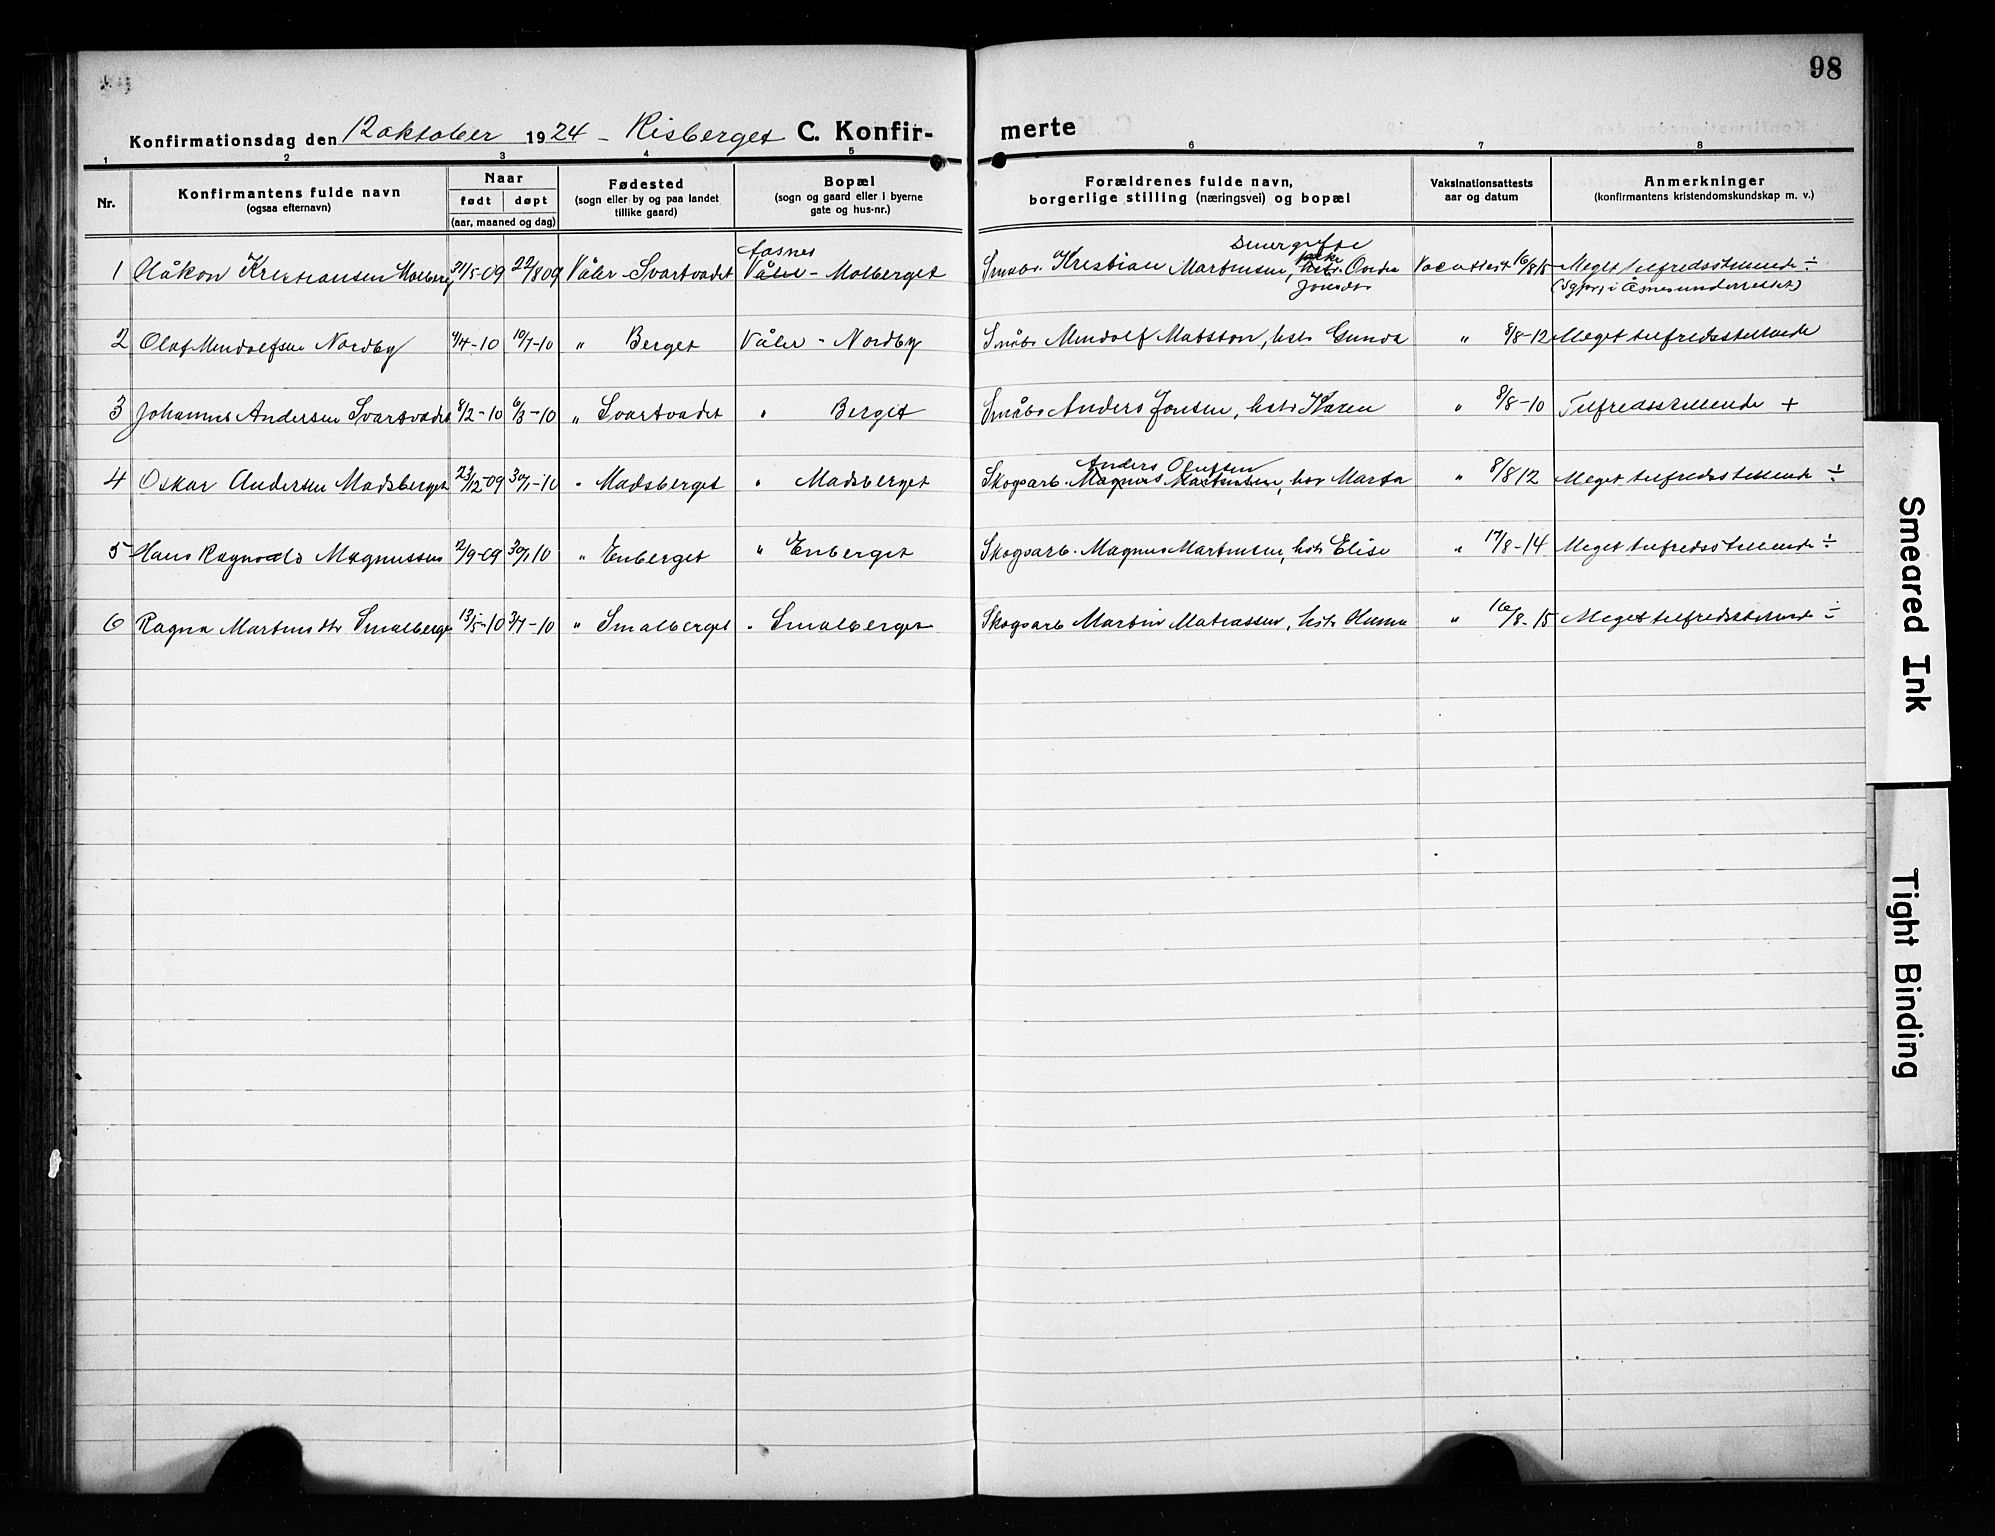 98
Konfirmationsdag den 12 oktober 1924 - Risberget C. Konfir-
merte
1 2 3 4 5 6 7 8
Nr.
Konfirmantens fulde navn
(ogsaa efternavn)
Naar
født døpt
(aar, maaned og dag)
Fødested
(sogn eller by og paa landet
tillike gaard)
Bopæl
(sogn og gaard eller i byerne
gate og hus-nr.)
Forældrenes fulde navn,
borgerlige stilling (næringsvei) og bopæl
Vaksinationsattests
aar og datum
Anmerkninger
(konfirmantens kristendomskundskap m. v.)
Aasnes
1 Håkon Kristiansen Molberg 31/5-09 22/8 09 Våler - Svartvadet Våler - Molberget Småbr. Kristian Martinsen, hstr. Vacattest 16/8 15 Meget tilfredsstillende ÷
2 Olaf Mendolfsen Nordby 4/4-10 10/7-10 " Berget Våler - Nordby Småbr Mendolf Matsson, hstr Gunda " 8/8-12 Meget tilfredsstillende
3 Johannes Andersen Svartvadet 8/2-10 6/3-10 " Svartvadet " Berget Småbr Anders Jonsen, hstr Karen " 8/8-10 Tilfredsstillende +
Anders Olufsen
4 Oskar Andersen Madsberget 23/12-09 30/1-10 " Madsberget " Madsberget Skogsarb. Magnus Martinsen, hstr Marta " 8/8 12 Meget tilfredsstillende ÷
5 Hans Ragnvald Magnussen 12/9-09 30/1 10 " Enberget " Enberget Skogsarb. Magnus Martinsen, hstr Elise " 17/8-14 Meget tilfredsstillende ÷
6 Ragna Martinsdtr Smalberget 13/5-10 3/7-10 " Smalberget " Smalberget Skogsarb Martin Matiassen, hstr " 16/8-15 Meget tilfredsstillende ÷
Smeared Ink
Tight Binding